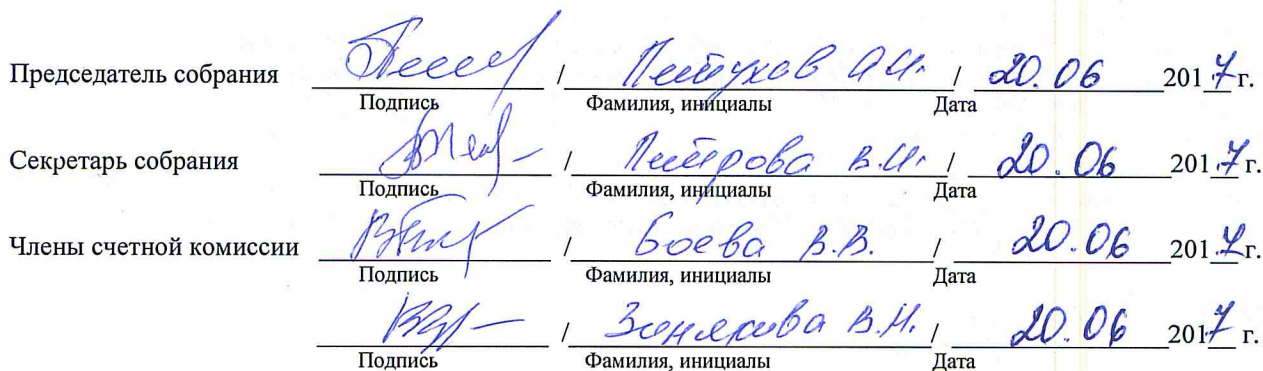 Председатель собрания / Петухов А.И. / 20.06 2017 г.
Подпись Фамилия, инициалы Дата
Секретарь собрания / Петрова В.И. / 20.06 2017 г.
Подпись Фамилия, инициалы Дата
Члены счетной комиссии / Боева В.В. / 20.06 2017 г.
Подпись Фамилия, инициалы Дата
/ В.Н. / 20.06 2017 г.
Подпись Фамилия, инициалы Дата